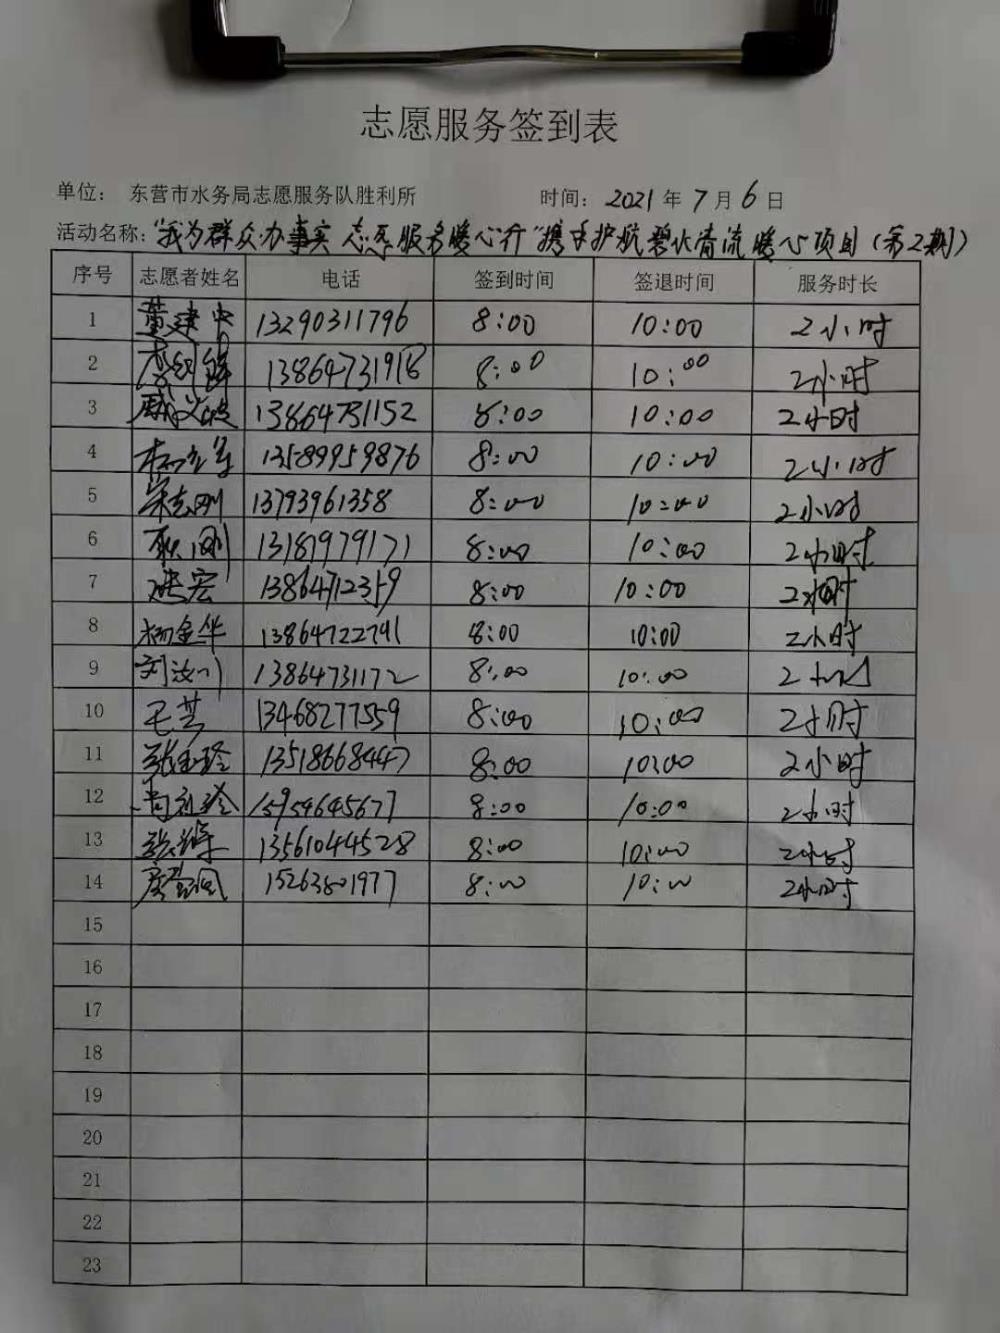 志愿服务签到表
单位： 东营市水务局志愿服务队胜利所 时间： 2021 年 7 月 6 日
活动名称：“我为群众办事实 志愿服务暖心行”携手护航碧水清流暖心项目（第2期）
序号 志愿者姓名 电话 签到时间 签退时间 服务时长
1 董建中 13290311796 8:00 10:00 2小时
2 8:00 10:00 2小时
3 13864731152 8:00 10:00 2小时
4 13589959876 8:00 10:00 2小时
5 宋志刚 13793961358 8:00 10:00 2小时
6 耿刚 13181979171 8:00 10:00 2小时
7 宏 13864712359 8:00 10:00 2小时
8 杨金华 13864722791 8:00 10:00 2小时
9 刘汝川 13864731172 8:00 10:00 2小时
10 毛芸 13468277559 8:00 10:00 2小时
11 张玉玲 13518668447 8:00 10:00 2小时
12 15954645677 8:00 10:00 2小时
13 张 13561044528 8:00 10:00 2小时
14 15263801977 8:00 10:00 2小时
15
16
17
18
19
20
21
22
23